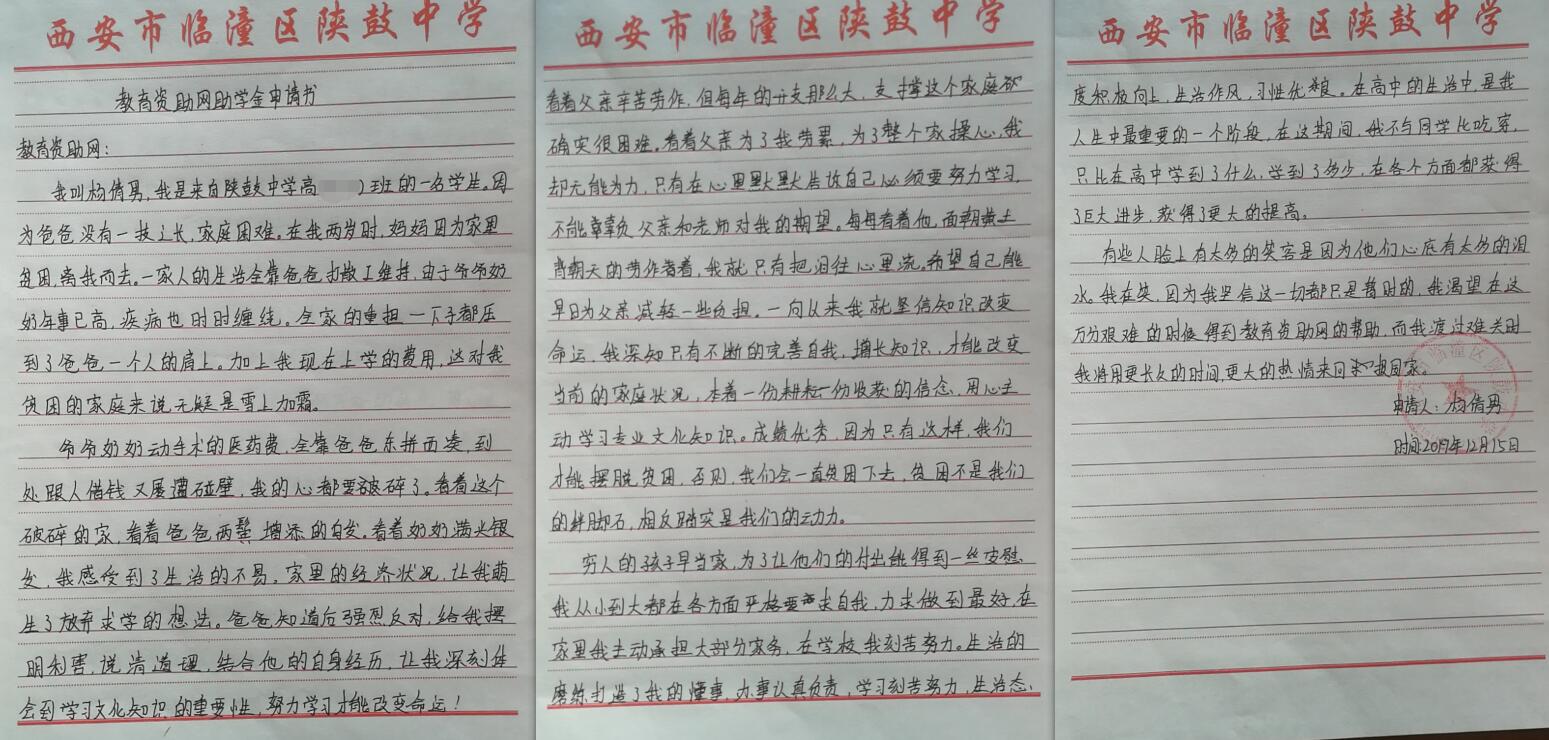 西安市临潼区陕鼓中学
教育资助网助学金申请书
教育资助网：
我叫杨倩男，我是来自陕鼓中学高）班的一名学生。因
为爸爸没有一技之长，家庭困难。在我两岁时，妈妈因为家里
贫困，离我而去。一家人的生活全靠爸爸打散工维持，由于爷爷奶
奶年事已高，疾病也时时缠绕。全家的重担一下子都压
到了爸爸一个人的肩上。加上我现在上学的费用，这对我
贫困的家庭来说无疑是雪上加霜。
爷爷奶奶动手术的医药费，全靠爸爸东拼西凑，到
处跟人借钱又屡遭碰壁，我的心都要破碎了。看着这个
破碎的家，看着爸爸两鬓增添的白发。看着奶奶满头银
发，我感受到了生活的不易，家里的经济状况，让我萌
生了放弃求学的想法。爸爸知道后强烈反对，给我摆
明利害，说清道理，结合他的自身经历，让我深刻体
会到学习文化知识的重要性，努力学习才能改变命运！
西安市临潼区陕鼓中学
看着父亲辛苦劳作，但每年的开支那么大，支撑这个家庭
确实很困难。看着父亲为了我劳累，为了整个家操心，我
却无能为力，只有在心里默默告诉自己必须要努力学习，
不能辜负父亲和老师对我的期望。每每看着他，面朝黄土
背朝天的劳作者着，我就只有把泪往心里流。希望自己能
早日为父亲减轻一些负担。一向从来我就坚信知识改变
命运，我深知只有不断的完善自我，增长知识，才能改变
当前的家庭状况，本着一份耕耘一份收获的信念，用心主
动学习专业文化知识。成绩优秀，因为只有这样，我们
才能摆脱贫困，否则，我们会一直贫困下去，贫困不是我们
的绊脚石，相反踏实是我们的动力。
穷人的孩子早当家，为了让他们的付出能得到一丝安慰，
我从小到大都在各方面严格要求自我，力求做到最好，在
家里我主动承担大部分家务，在学校我刻苦努力。生活的
磨练打造了我的懂事，办事认真负责，学习刻苦努力，生活态、
西安市临潼区陕鼓中学
度积极向上，生活作风，习性优良。在高中的生活中，是我
人生中最重要的一个阶段，在这期间，我不与同学比吃穿，
只比在高中学到了什么，学到了多少，在各个方面都获得
了巨大进步，获得了更大的提高。
有些人脸上有太多的笑容是因为他们心底有太多的泪
水。我在笑，因为我坚信这一切都只是暂时的，我渴望在这
万分艰难的时候得到教育资助网的帮助，而我渡过难关时
我将用更长久的时间，更大的热情来回报国家。
申请人：杨倩男
时间：2019年12月15日